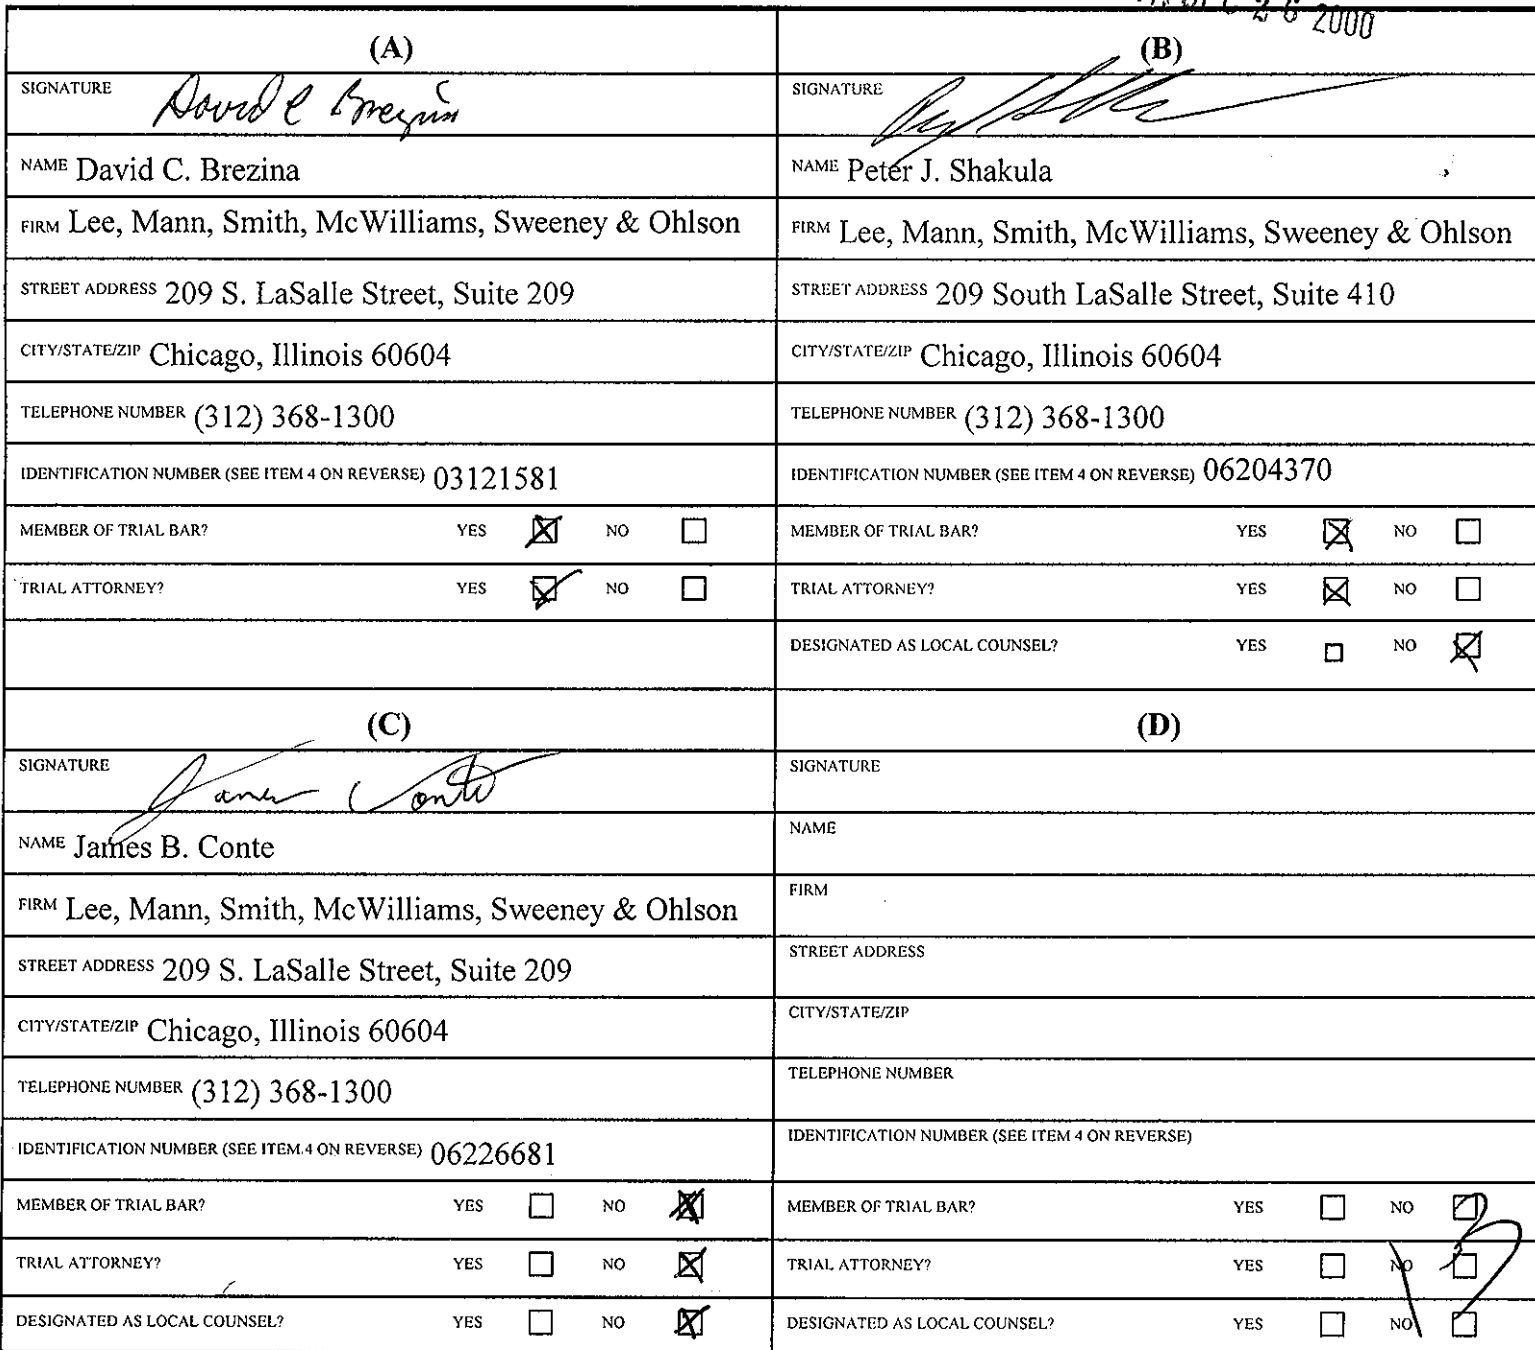 2 6 2000
(A)
SIGNATURE David C Brezina
NAME David C. Brezina
FIRM Lee, Mann, Smith, McWilliams, Sweeney & Ohlson
STREET ADDRESS 209 S. LaSalle Street, Suite 209
CITY/STATE/ZIP Chicago, Illinois 60604
TELEPHONE NUMBER (312) 368-1300
IDENTIFICATION NUMBER (SEE ITEM 4 ON REVERSE) 03121581
MEMBER OF TRIAL BAR? YES NO
TRIAL ATTORNEY? YES NO
(B)
SIGNATURE
NAME Peter J. Shakula
FIRM Lee, Mann, Smith, McWilliams, Sweeney & Ohlson
STREET ADDRESS 209 South LaSalle Street, Suite 410
CITY/STATE/ZIP Chicago, Illinois 60604
TELEPHONE NUMBER (312) 368-1300
IDENTIFICATION NUMBER (SEE ITEM 4 ON REVERSE) 06204370
MEMBER OF TRIAL BAR? YES NO
TRIAL ATTORNEY? YES NO
DESIGNATED AS LOCAL COUNSEL? YES NO
(C)
SIGNATURE James Conte
NAME James B. Conte
FIRM Lee, Mann, Smith, McWilliams, Sweeney & Ohlson
STREET ADDRESS 209 S. LaSalle Street, Suite 209
CITY/STATE/ZIP Chicago, Illinois 60604
TELEPHONE NUMBER (312) 368-1300
IDENTIFICATION NUMBER (SEE ITEM 4 ON REVERSE) 06226681
MEMBER OF TRIAL BAR? YES NO
TRIAL ATTORNEY? YES NO
DESIGNATED AS LOCAL COUNSEL? YES NO
(D)
SIGNATURE
NAME
FIRM
STREET ADDRESS
CITY/STATE/ZIP
TELEPHONE NUMBER
IDENTIFICATION NUMBER (SEE ITEM 4 ON REVERSE)
MEMBER OF TRIAL BAR? YES NO
TRIAL ATTORNEY? YES NO
DESIGNATED AS LOCAL COUNSEL? YES NO